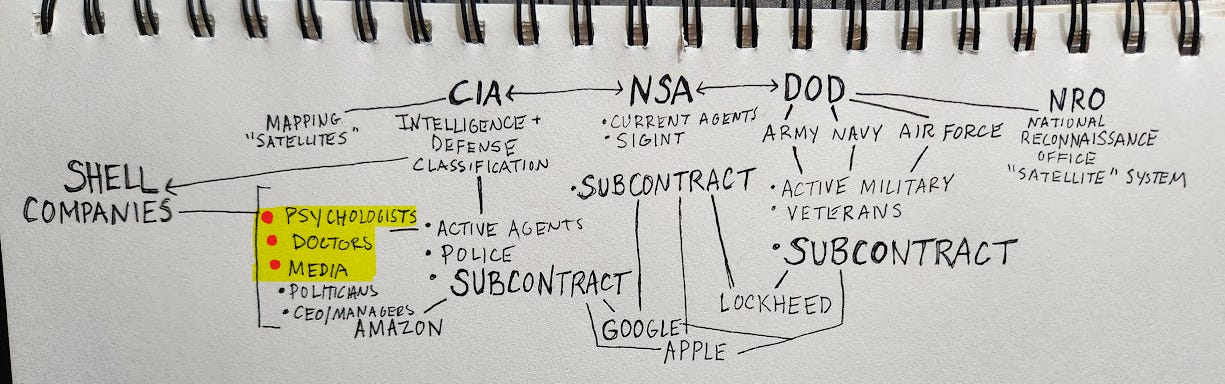 CIA
NSA
DOD
NRO
MAPPING
"SATELLITES"
INTELLIGENCE +
DEFENSE
CLASSIFICATION
• CURRENT AGENTS
• SIGINT
ARMY NAVY AIR FORCE
NATIONAL
RECONNAISSANCE
OFFICE
"SATELLITE" SYSTEM
SHELL
COMPANIES
• PSYCHOLOGISTS
• DOCTORS
• MEDIA
• POLITICIANS
• CEO/MANAGERS
• ACTIVE AGENTS
• POLICE
• SUBCONTRACT
• SUBCONTRACT
• ACTIVE MILITARY
• VETERANS
• SUBCONTRACT
AMAZON
GOOGLE
APPLE
LOCKHEED